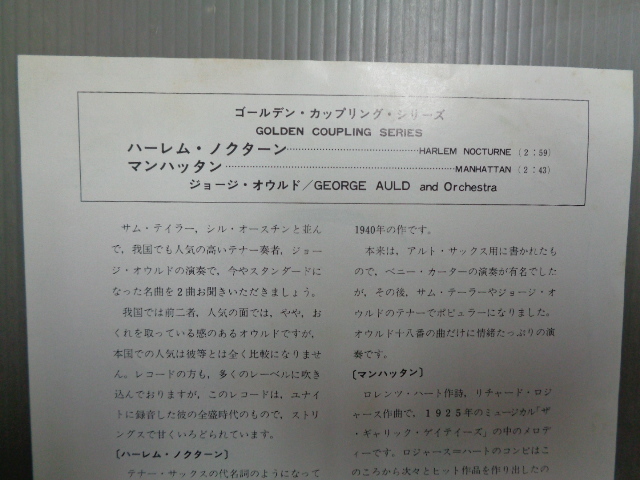 ゴールデン・カップリング・シリーズ
GOLDEN COUPLING SERIES
ハーレム・ノクターン……………HARLEM NOCTURNE (2:59)
マンハッタン……………MANHATTAN (2:43)
ジョージ・オウルド/GEORGE AULD and Orchestra
サム・テイラー,シル・オースチンと並ん
で,我国でも人気の高いテナー奏者,ジョー
ジ・オウルドの演奏で,今やスタンダードに
なった名曲を2曲お聞きいただきましょう。
我国では前二者,人気の面では,やや,お
くれを取っている感のあるオウルドですが,
本国での人気は彼等とは全く比較になりませ
ん。レコードの方も,多くのレーベルに吹き
込んでおりますが,このレコードは,ユナイ
トに録音した彼の全盛時代のもので,ストリ
ングスで甘くいろどられています。
〔ハーレム・ノクターン〕
テナー・サックスの代名詞のようになって
1940年の作です。
本来は,アルト・サックス用に書かれたも
ので,ベニー・カーターの演奏が有名でした
が,その後,サム・テーラーやジョージ・オ
ウルドのテナーでポピュラーになりました。
オウルド十八番の曲だけに情緒たっぷりの演
奏です。
〔マンハッタン〕
ロレンツ・ハート作詩,リチャード・ロジ
ャース作曲で,1925年のミュージカル「ザ
・ギャリック・ゲイティーズ」の中のメロデ
ィーです。ロジャース=ハートのコンビはこ
のころから次々とヒット作品を作り出したの